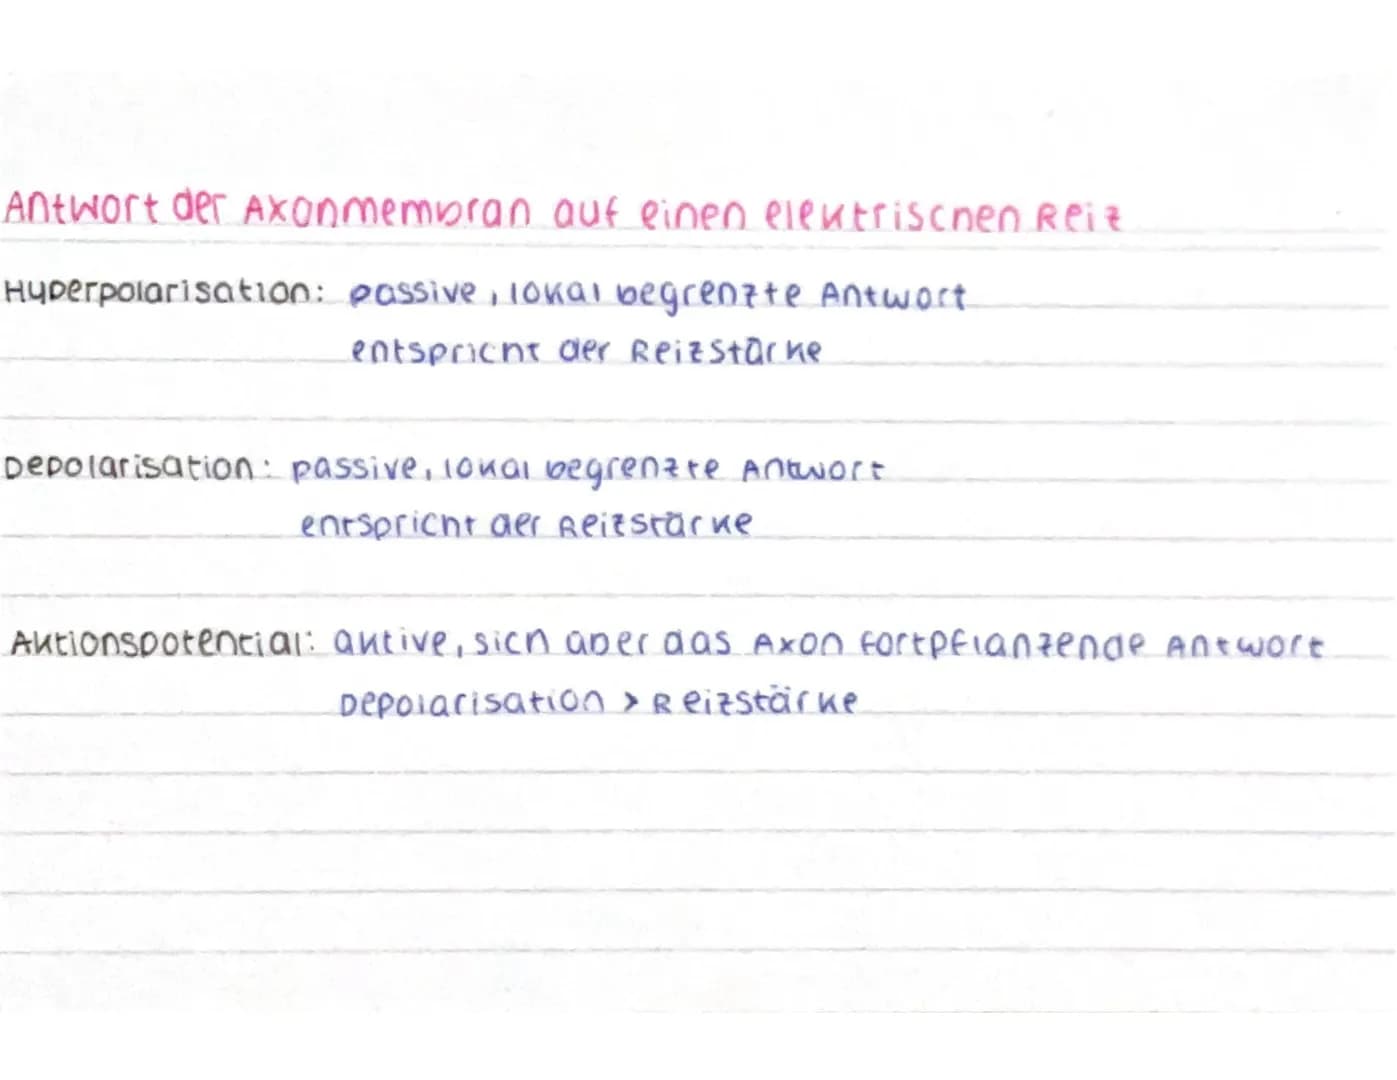 Antwort der Axonmembran auf einen elektrischen Reiz
Hyperpolarisation: passive, lokal begrenzte Antwort
entspricht der Reizstärke
Depolarisation: passive, lokal begrenzte Antwort
entspricht der Reizstärke
Aktionspotential: aktive, sich über das Axon fortpflanzende Antwort
Depolarisation > Reizstärke